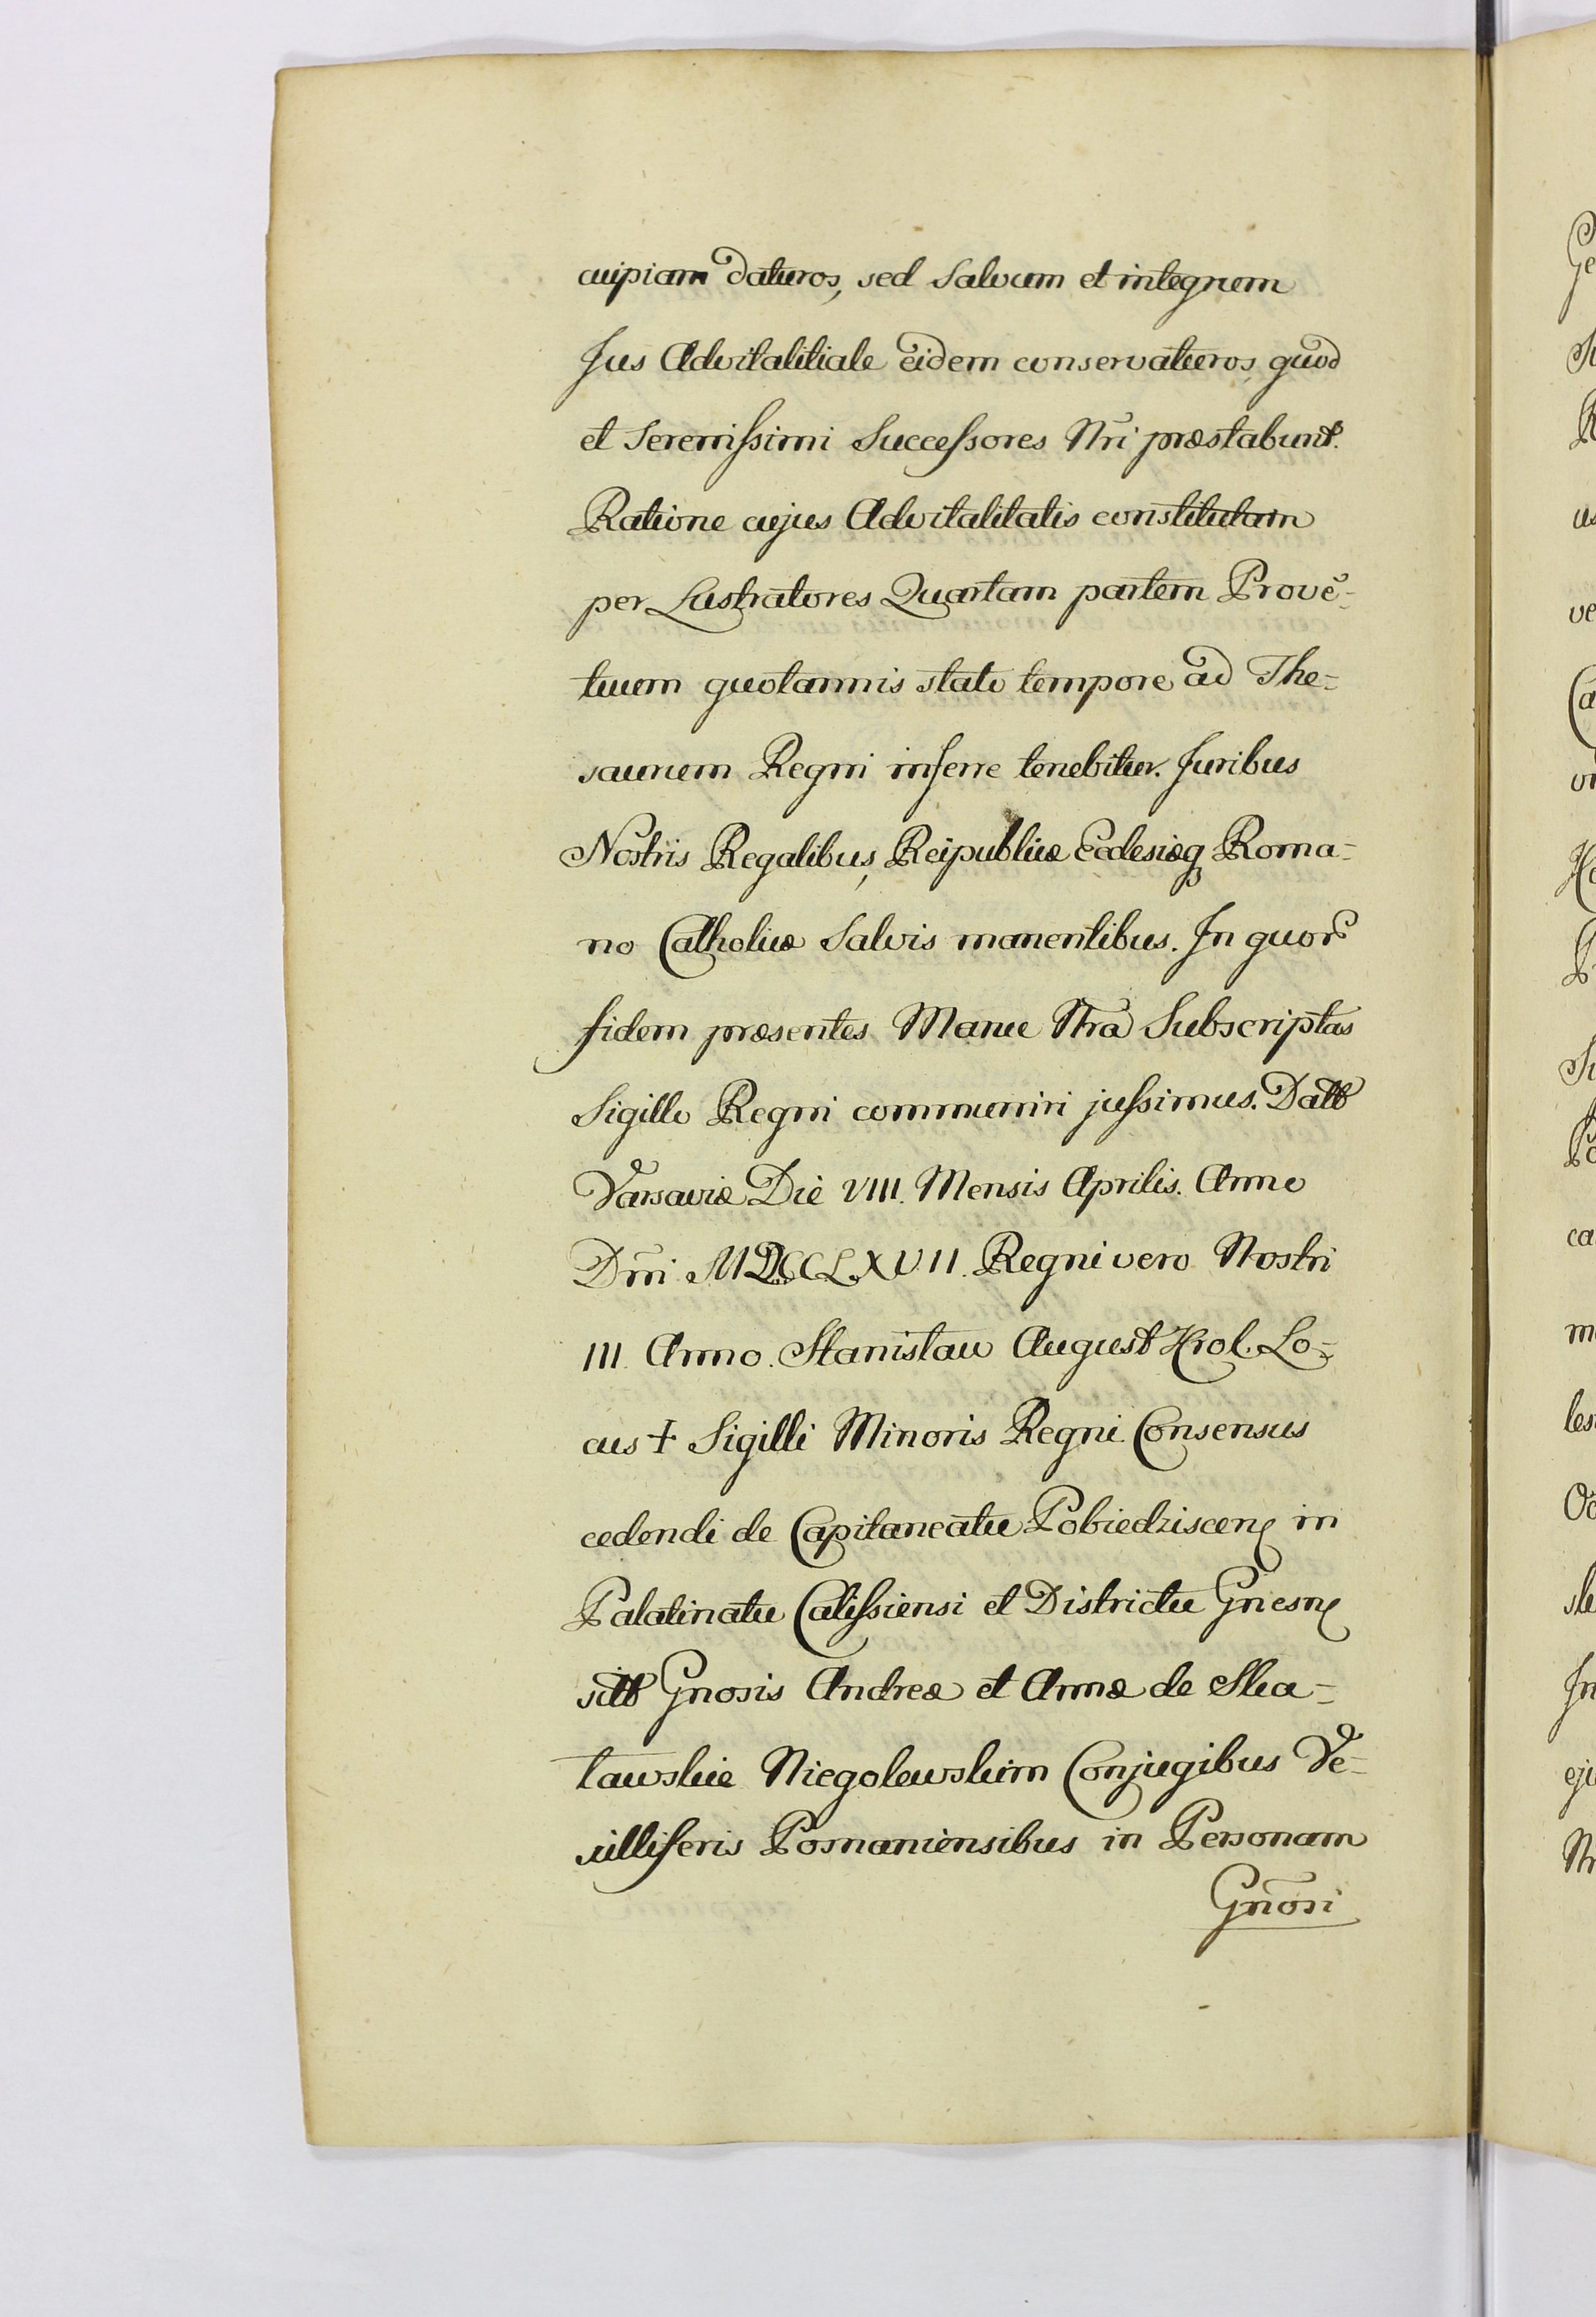 cuipiam daturos, sed Salvum et integrum
Jus Advitalitiale eidem conservaturos, quod
et Serenissimi Successores Nri præstabunt.
Ratione cujus Advitalitatis constitutam
per Lustratores Quartam partem Provē-
tuum quotannis stato tempore ad The-
saurum Regni inferre tenebitur. Juribus
Nostris Regalibus, Reipublicæ Ecclesiæq Roma-
no Catholicæ Salvis manentibus. In quor
fidem præsentes Manu Nra Subscriptas
Sigillo Regni communiri jussimus. Datt
Varsaviæ Die VIII. Mensis Aprilis. Anno
Dni MDCCLXVII. Regni vero Nostri
III. Anno. Stanisław August Krol. Lo-
cus + Sigilli Minoris Regni. Consensus
cedendi de Capitaneatu Pobiedziscen in
Palatinatu Calissiensi et Districtu Gnesn
sitt Gnosis Andreæ et Annæ de Ska-
ławskie Niegolewskim Conjugibus Ve-
xilliferis Posnaniensibus in Personam
Gnosi